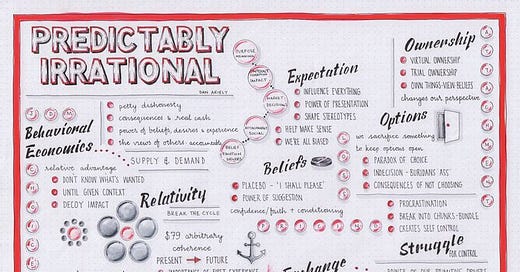 PREDICTABLY
IRRATIONAL
DAN ARIELY
petty dishonesty
consequences & real cash
power of beliefs, desires & experience
the views of others
Behavioral
Economics...
SUPPLY & DEMAND
relative advantage
DON'T KNOW WHAT'S WANTED
UNTIL GIVEN CONTEXT
DECOY IMPACT
Relativity
BREAK THE CYCLE
$79 arbitrary
coherence
PRESENT → FUTURE
IMPORTANCE OF FIRST EXPERIENCE
Expectation
INFLUENCE EVERYTHING
POWER OF PRESENTATION
SHAPE STEREOTYPES
HELP MAKE SENSE
WE'RE ALL BIASED
Beliefs
PLACEBO - 'I SHALL PLEASE'
POWER OF SUGGESTION
confidence/faith + conditioning
PRICING
Exchange
Ownership
VIRTUAL OWNERSHIP
TRIAL OWNERSHIP
OWN THINGS-VIEW-BELIEFS
changes our perspective
Options
we sacrifice something
to keep options open
PARADOX OF CHOICE
INDECISION - BURIDANS ASS
CONSEQUENCES OF NOT CHOOSING
PROCRASTINATION
BREAK INTO CHUNKS-BUNDLE
CREATES SELF CONTROL
Struggle
FOR CONTROL